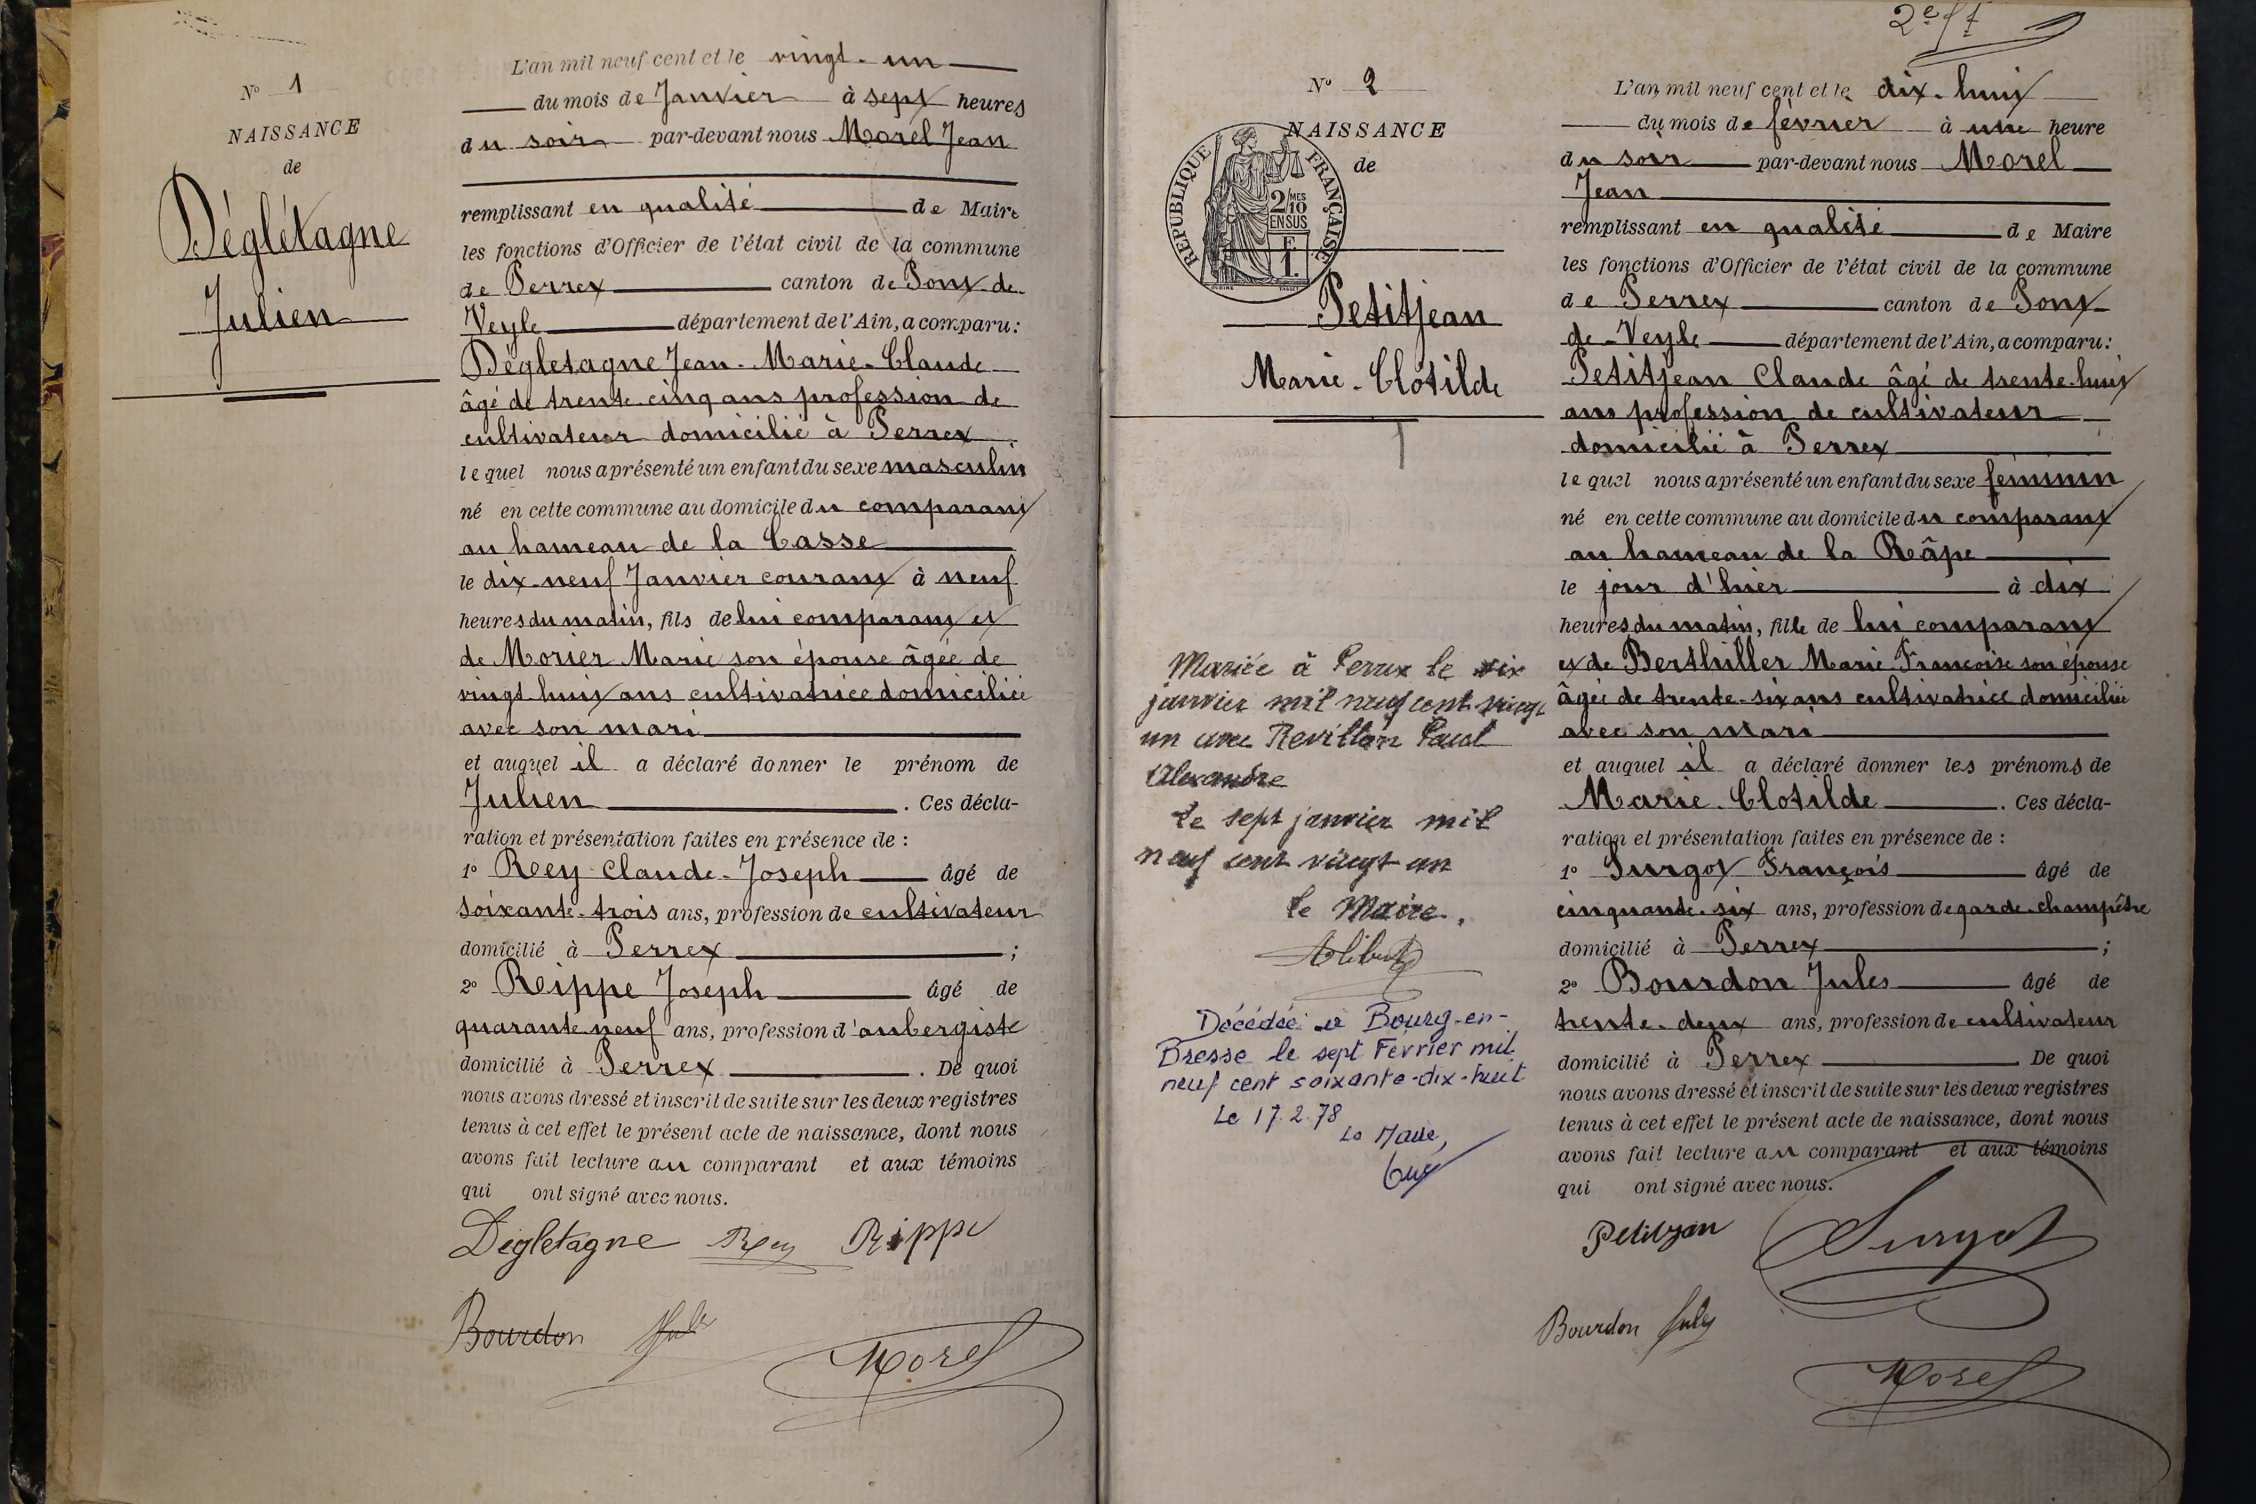 N° 1
NAISSANCE
de
Déglétagne
Julien
L'an mil neuf cent et le vingt-un
du mois de Janvier à sept heures
du soir par-devant nous Morel Jean
remplissant en qualité de Maire
les fonctions d'Officier de l'état civil de la commune
de Perrex canton de Pont-de-
Veyle département de l'Ain, a comparu:
Dégletagne Jean-Marie-Claude
âgé de trente-cinq ans profession de
cultivateur domicilié à Perrex
lequel nous a présenté un enfant du sexe masculin
né en cette commune au domicile du comparant
au hameau de la Casse
le dix-neuf Janvier courant à neuf
heures du matin, fils de lui comparant et
de Morier Marie son épouse âgée de
vingt-huit ans cultivatrice domiciliée
avec son mari
et auquel il a déclaré donner le prénom de
Julien. Ces décla-
ration et présentation faites en présence de :
1° Rey Claude-Joseph âgé de
soixante-trois ans, profession de cultivateur
domicilié à Perrex ;
2° Rippe Joseph âgé de
quarante-neuf ans, profession d'aubergiste
domicilié à Perrex. De quoi
nous avons dressé et inscrit de suite sur les deux registres
tenus à cet effet le présent acte de naissance, dont nous
avons fait lecture au comparant et aux témoins
qui ont signé avec nous.
Dégletagne Rey Rippe
Bourdon Jules
Morel
2e ft
N° 2
NAISSANCE
de
REPUBLIQUE FRANÇAISE
2/10 MES
EN SUS
F.
1.
Petitjean
Marie-Clotilde
Mariée à Perrex le six
janvier mil neuf cent vingt
un avec Revillon Paul
Alexandre
Le sept janvier mil
neuf cent vingt un
Le Maire.
Décédée à Bourg-en-
Bresse le sept Février mil
neuf cent soixante-dix-huit
Le 17.2.78
Le Maire,
L'an mil neuf cent et le dix-huit
du mois de février à une heure
du soir par-devant nous Morel
Jean
remplissant en qualité de Maire
les fonctions d'Officier de l'état civil de la commune
de Perrex canton de Pont-
de-Veyle département de l'Ain, a comparu:
Petitjean Claude âgé de trente-huit
ans profession de cultivateur
domicilié à Perrex
lequel nous a présenté un enfant du sexe féminin
né en cette commune au domicile du comparant
au hameau de la Râpe
le jour d'hier à dix
heures du matin, fille de lui comparant
et de Berthiller Marie Françoise son épouse
âgée de trente-six ans cultivatrice domiciliée
avec son mari
et auquel il a déclaré donner les prénoms de
Marie-Clotilde. Ces décla-
ration et présentation faites en présence de :
1° Surgot François âgé de
cinquante-six ans, profession de garde-champêtre
domicilié à Perrex ;
2° Bourdon Jules âgé de
trente-deux ans, profession de cultivateur
domicilié à Perrex De quoi
nous avons dressé et inscrit de suite sur les deux registres
tenus à cet effet le présent acte de naissance, dont nous
avons fait lecture au comparant et aux témoins
qui ont signé avec nous.
Petitjean Surgot
Bourdon Jules
Morel